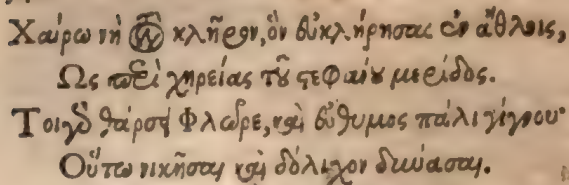 Χαίρω νὴ τὸν κλῆρον, ὃν εὐκλήρησας ἐν ἄθλοις,
Ὡς περὶ χηρείας τοῦ στεφάνου μερίδος.
Τοιγὰρ θάρσει Φλῶρε, καὶ εὔθυμος πάλι γίγνου·
Οὕτω νικῆσαι καὶ δόλιχον δύνασαι.